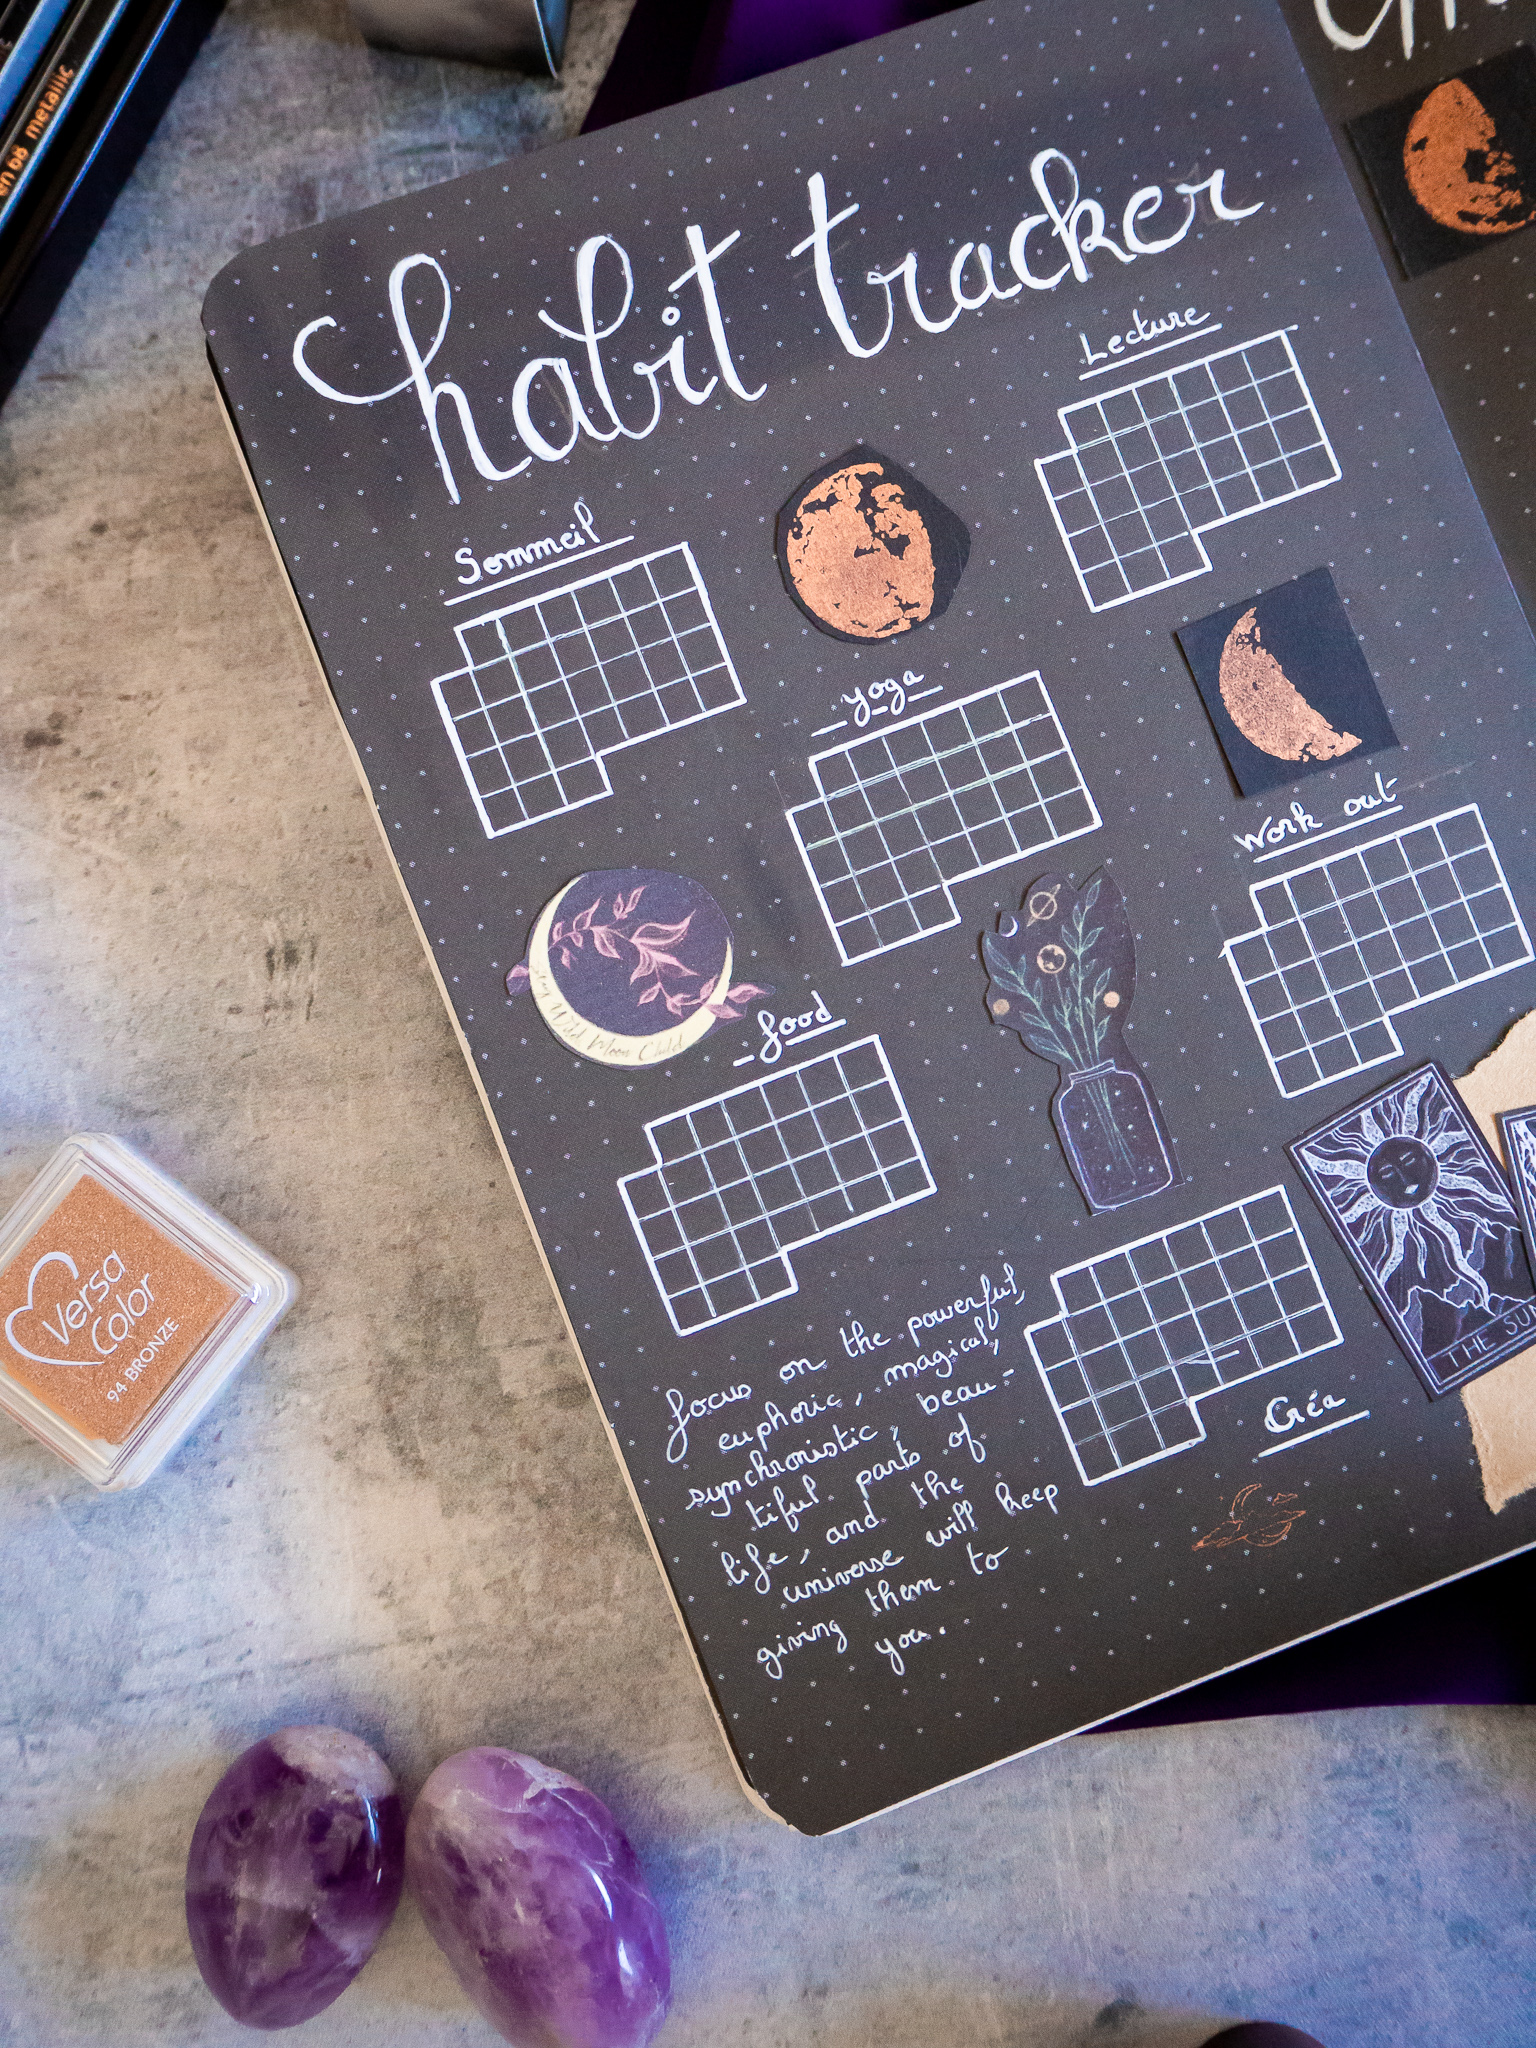 metallic
habit tracker
Lecture
Sommeil
yoga
Work out
Stay Wild Moon Child
food
THE SUN
Versa
Color
94 BRONZE
focus on the powerful,
euphoric, magical,
synchronistic, beau-
tiful parts of
life, and the
universe will keep
giving them to
you.
Créa